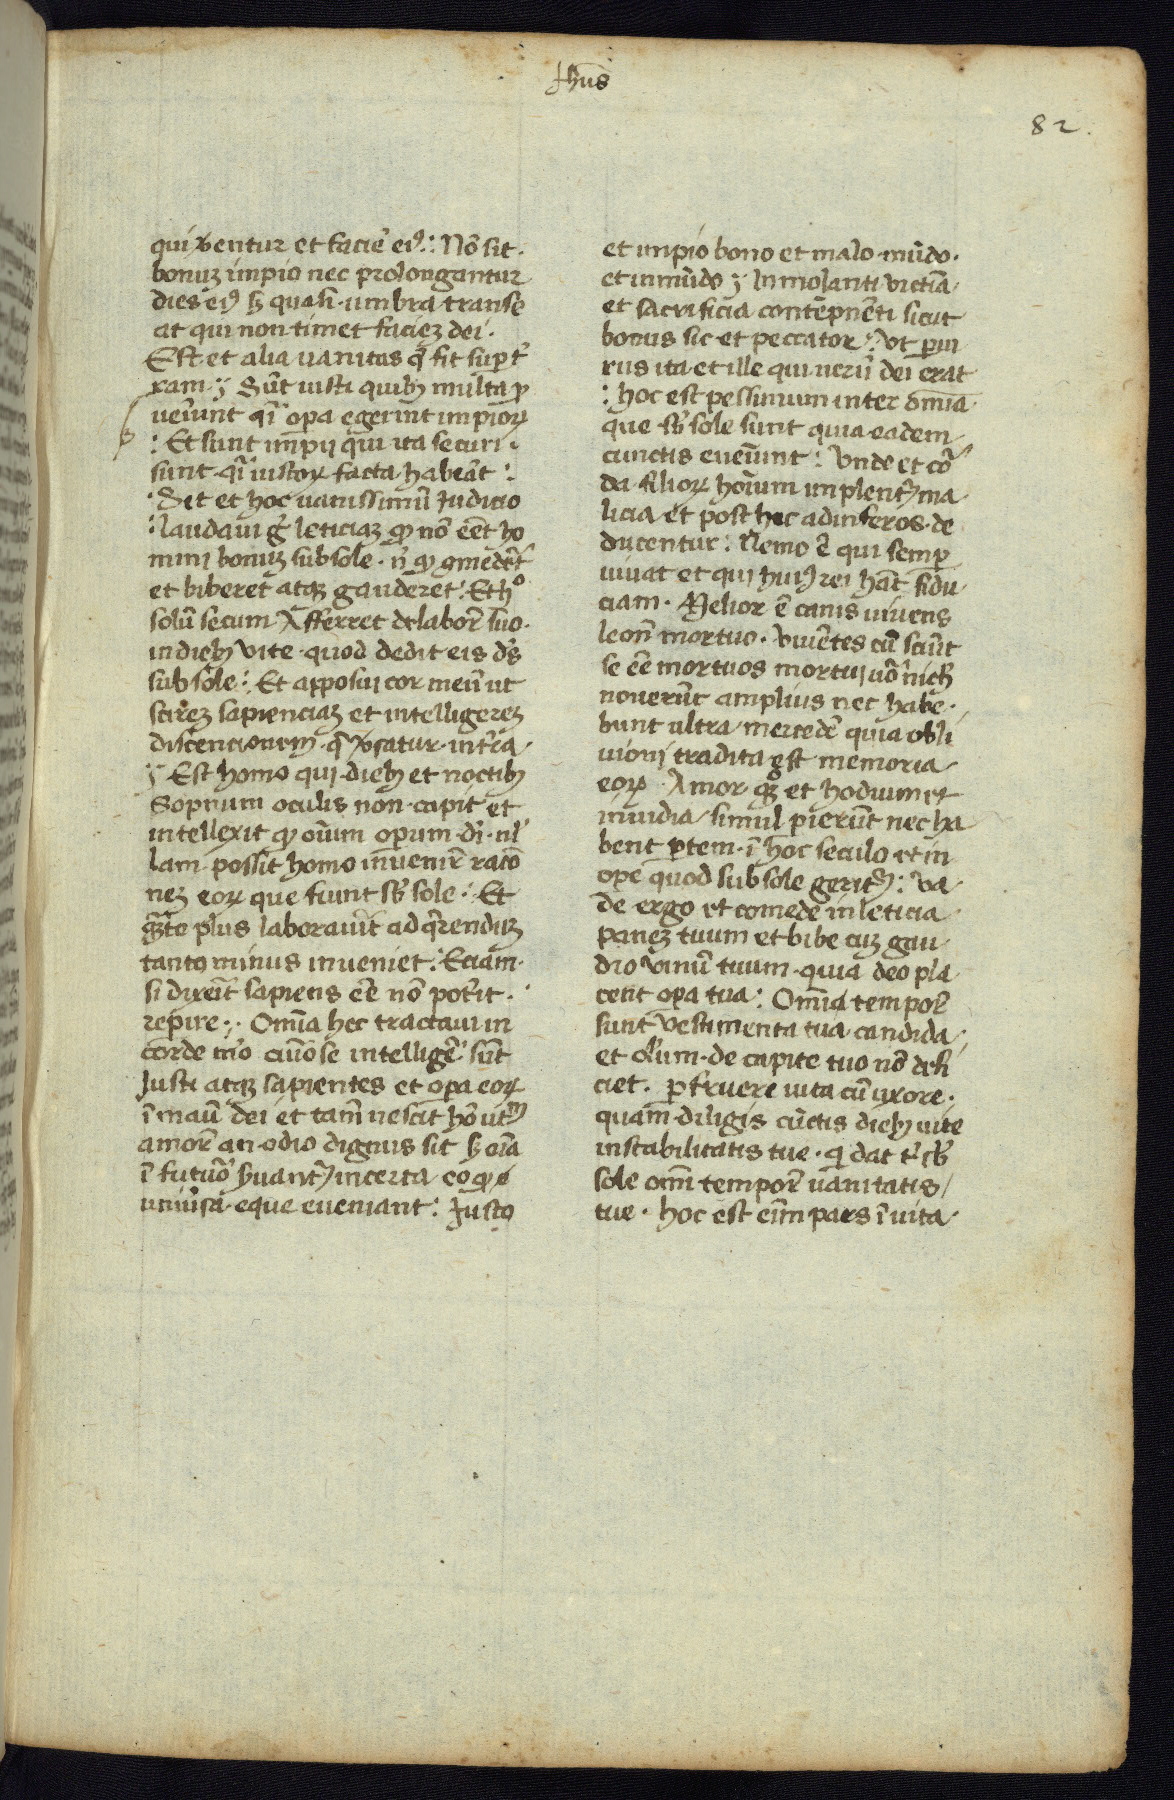 Jhūs
82.
qui verentur et facie᷑ eiꝰ: No᷑ sit.
bonuꝫ impio nec prolongantur
dies eiꝰ sꝫ quasi umbra transe
at qui non timet facieꝫ dei.
Est et alia uanitas q̄ fit suꝑ t᷑
ram. Su᷑t iusti quibꝫ multa ꝓ
ueniunt q̄i oꝑa egerint impioꝝ
: Et sunt impij qui ita securi.
sunt q̄i iustoꝝ facta habea᷑t:
Set et hoc uanissimu᷑ Judico
: laudaui g̊ leticiaꝫ ꝙ no᷑ ee᷑t ho
mini bonuꝫ sub sole. ni᷑ ꝙ ꝯmeder᷑t
et biberet atqꝫ gauderet: Et h̊
solu᷑ secum Afferret de labor᷑ suo.
in diebꝫ vite quod dedit eis ds᷑
sub sole: Et apposui cor meu᷑ ut
scireꝫ sapienciaꝫ et intelligereꝫ
distencionem q̄ v᷑satur in t᷑ra
Est homo qui diebꝫ et noctibꝫ
Sopnum oculis non capit et
intellexit ꝙ oi᷑um oꝑum di᷑ nl᷑
lam possit homo inuenir᷑ racio᷑
neꝫ eoꝝ que fiunt sb᷑ sole: Et
q̄ꝫto plus laborauit᷑ ad q̄rendum
tanto minus inueniet: Eciam.
si dixeit᷑ sapiens se᷑ no᷑ poterit.
reꝑire: Omnia hec tractaui in
corde m̊o curiose intellige᷑ su᷑t
Justi atqꝫ sapientes et oꝑa eoꝝ
i᷑ manu᷑ dei et tame᷑ nescit ho᷑ utꝝ
amor᷑ an odio dignus sit sꝫ oi᷑a
i᷑ futuro᷑ s᷑uant᷑ incerta eo ꝙ
uniu᷑sa eque eueniant: Justo
et impio bono et malo mu᷑do.
et inmu᷑do Inmolanti victi᷑a
et sacrificia conte᷑pne᷑ti sicut
bonus sic et peccator: Vt ꝑiu
rus ita et ille qui ueru᷑ dei erat
: hoc est pessimum inter omnia
que sb᷑ sole sunt quia eadem
cunctis eueniunt: Vnde et cor᷑
da filioꝝ homi᷑um implent᷑ ma
licia et post hec ad inferos de
ducentur: Nemo e᷑ qui semꝑ
uiuat et qui huiꝰ rei ha᷑t fidu
ciam. Melior e᷑ canis uiuens
leon᷑ mortuo. Viue᷑tes eni᷑ sciu᷑t
se ee᷑ mortuos mortui uo᷑ nich᷑
noueru᷑t amplius nec habe.
bunt ultra mercede᷑ quia obli
uioni tradita est memoria
eoꝝ Amor qꝫ et hodium et
inuidia simul ꝑieru᷑t nec ha
bent ꝑtem i᷑ hoc seculo et in
oꝑe quod sub sole gerit᷑: Va
de ergo et comede in leticia
paneꝫ tuum et bibe cuꝫ gau
dio vinu᷑ tuum quia deo pla
cent oꝑa tua: Omnia tempor᷑
sunt vestimenta tua candida
et oleum de capite tuo no᷑ defi
ciet. ꝑfruere uita cu᷑ uxore.
quam diligis cu᷑ctis diebꝫ uite
instabilitatis tue. q̄ dat t᷑ sb᷑
sole omi᷑ tempor᷑ uanitatis
tue. hoc est eni᷑m pars i᷑ uita